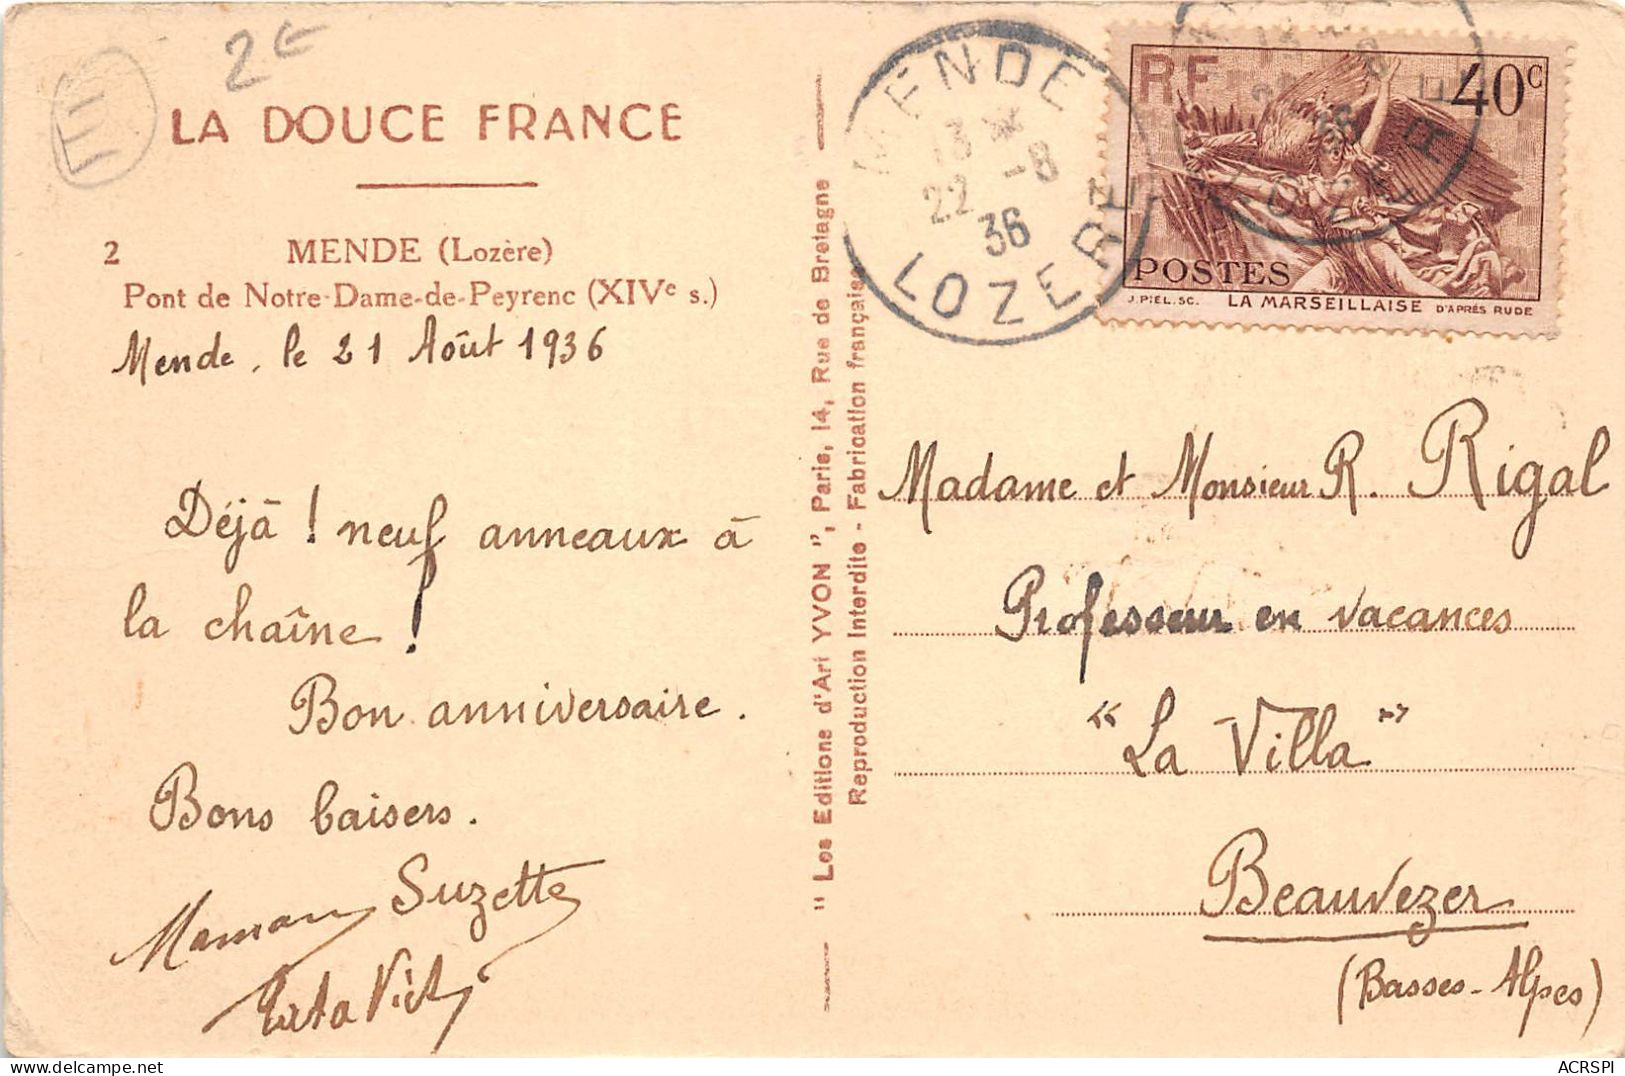 2€
LA DOUCE FRANCE
2 MENDE (Lozère)
Pont de Notre-Dame-de-Peyrenc (XIVe s.)
Mende, le 21 Août 1936
Déjà ! neuf anneaux à
la chaîne !
Bon anniversaire.
Bons baisers.
Maman Suzette
" Les Editions d'Art YVON ", Paris, 14, Rue de Bretagne
Reproduction Interdite - Fabrication française
MENDE
13 *
22 -8
36
LOZERE
RF 40c
POSTES
J. PIEL. SC. LA MARSEILLAISE D'APRÈS RUDE
Madame et Monsieur R. Rigal
Professeur en vacances
"La Villa"
Beauvezer
(Basses-Alpes)
ACRSPI